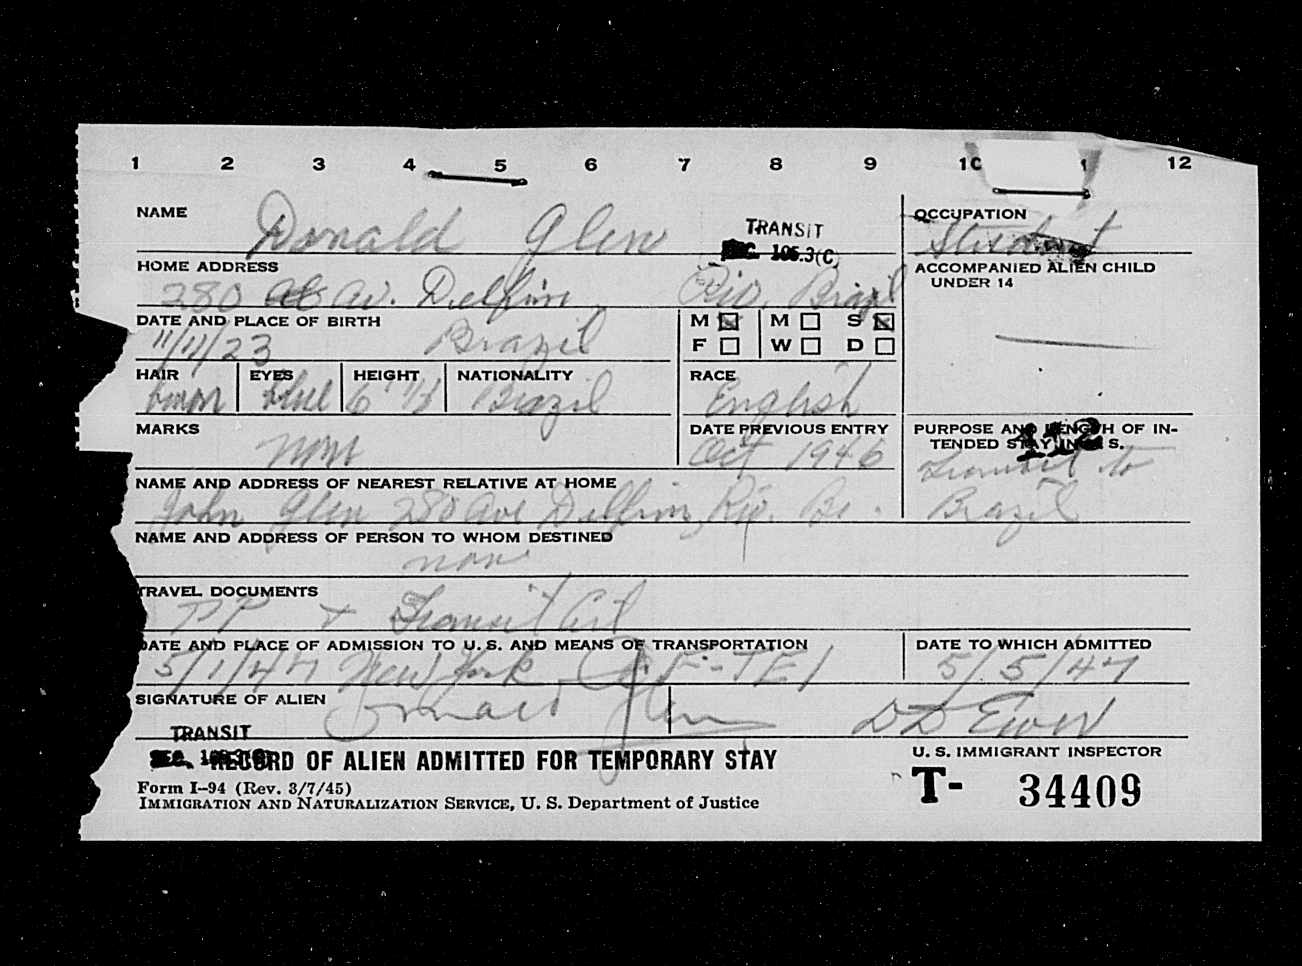 1 2 3 4 5 6 7 8 9 10 12
NAME Donald Glen
TRANSIT
SEC. 105.3(C)
OCCUPATION Student
HOME ADDRESS 280 Av. Delfim, Rio, Brazil
ACCOMPANIED ALIEN CHILD
UNDER 14
DATE AND PLACE OF BIRTH 11/11/23 Brazil
M M S
F W D
HAIR EYES blue HEIGHT NATIONALITY Brazil
RACE English
MARKS non
DATE PREVIOUS ENTRY Oct 1946
PURPOSE AND LENGTH OF IN-
TENDED STAY IN U. S.
112
Transit to
Brazil
NAME AND ADDRESS OF NEAREST RELATIVE AT HOME
John Glen 280 Ave Delfim, Rio. Br.
NAME AND ADDRESS OF PERSON TO WHOM DESTINED
non
TRAVEL DOCUMENTS
PP + Transit Cert
DATE AND PLACE OF ADMISSION TO U. S. AND MEANS OF TRANSPORTATION
5/1/47 New York,
DATE TO WHICH ADMITTED
5/5/47
SIGNATURE OF ALIEN Donald Glen
TRANSIT
SEC. 105.3(C)
RECORD OF ALIEN ADMITTED FOR TEMPORARY STAY
U. S. IMMIGRANT INSPECTOR
Form I-94 (Rev. 3/7/45)
IMMIGRATION AND NATURALIZATION SERVICE, U. S. Department of Justice
T- 34409